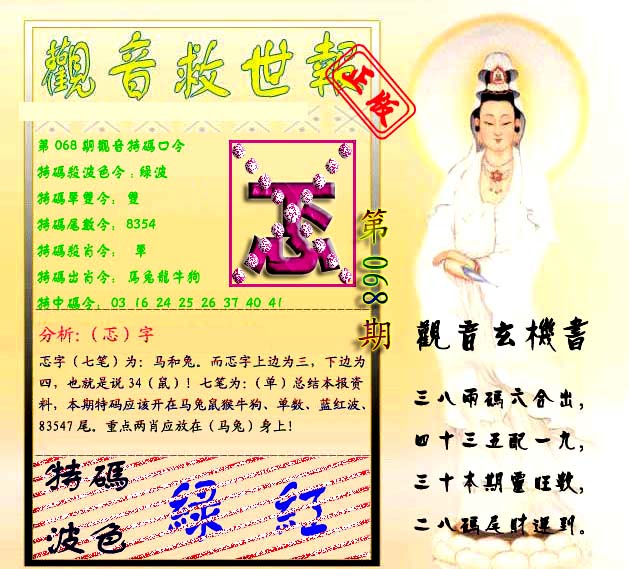 觀音救世報
正版
第068期觀音特碼口令
特碼殺波色令：綠波
特碼單雙令： 雙
特碼尾數令： 8354
特碼殺肖令： 單
特碼出肖令： 馬兔龍牛狗
特中碼令： 03 16 24 25 26 37 40 41
忑
第068期
分析:（忑）字
忑字（七笔）为：马和兔。而忑字上边为三，下边为
四，也就是说34（鼠）！七笔为:（单）总结本报资
料，本期特码应该开在马兔鼠猴牛狗、单数、蓝红波、
83547尾。重点两肖应放在（马兔）身上！
特碼
波色
綠 紅
觀音玄機書
三八兩碼六合出，
四十三五配一九，
三十本期靈旺數，
二八碼尾財運到。